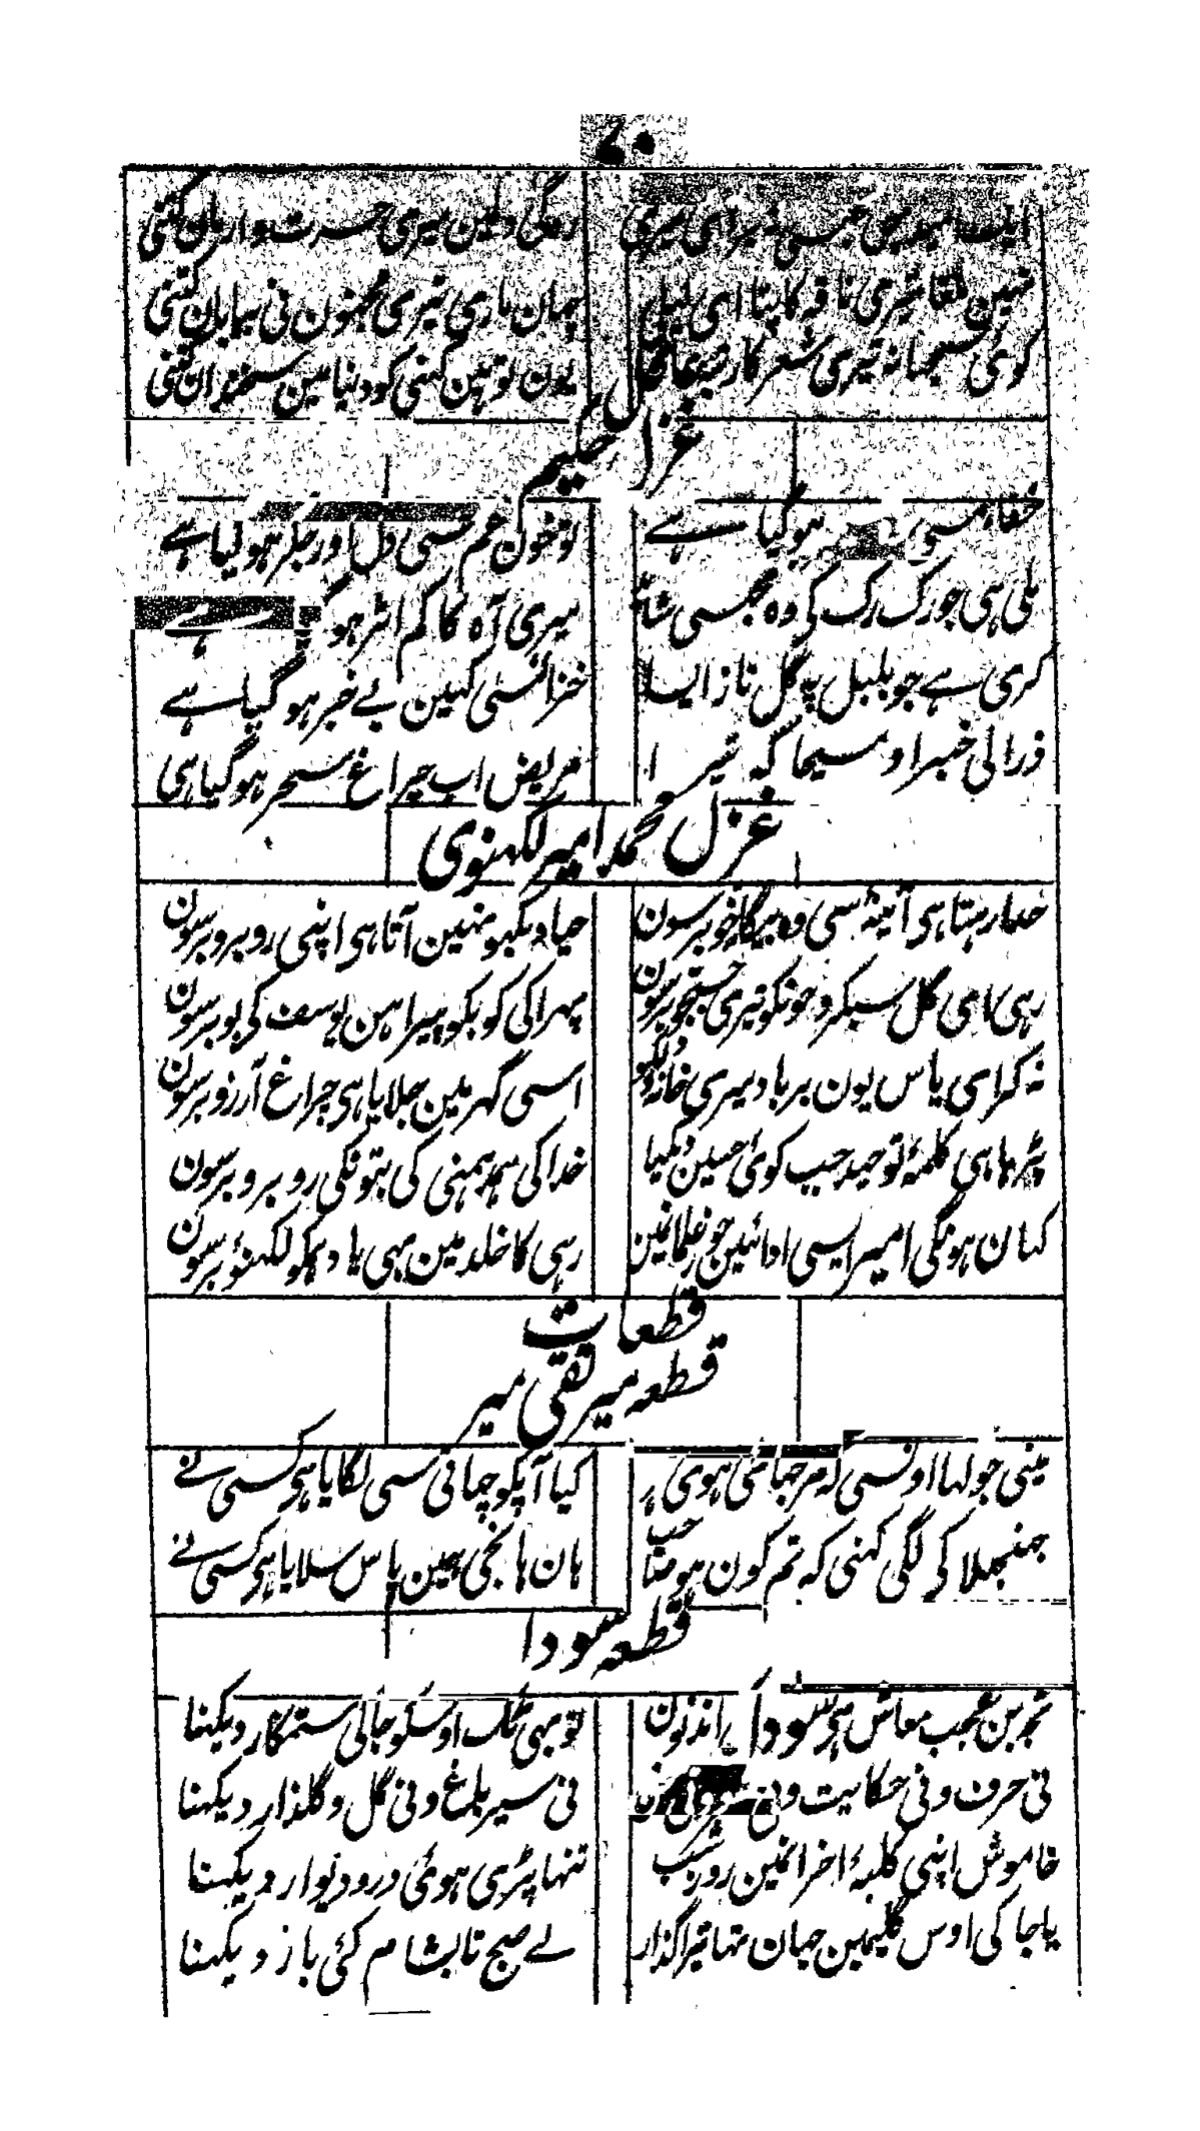 ۷۰
رہ گئی دلمین میری حسرت و ارمان کتنی
نہین ملتا تیری ناقہ کا پتا ای لیلی چہان ماری تیری مجنون نی بیابان کتنی
کوئی سمجہا نہ تیری شعر کا یون تو ہین کہنی کو دنیا مین سخندان کتنی
غزل حکیم
خفا ہو گیا ہے تو خون غم سی دل اور جگر ہو گیا ہے
ملی ہی جو رک رک کی وہ مجسی شاید میری آہ کا کم اثر ہو گیا ہے
کری ہے جو بلبل پہ گل ناز ایسا خزانسی کہین بے خبر ہو گیا ہے
ذرا لی خبر او مسیحا کہ تیرا مریض اب چراغ سحر ہو گیا ہی
غزل محمد امیر لکہنوی
رہتا ہی آئینہ سی وہ برسون حیا دیکہو نہین آتا ہی اپنی روبرو برسون
رہی ای گل سبکرو جونکو تیری جستجو برسون پہرا کی کو بکو پیراہن یوسف کی بو برسون
نہ کر ای یاس یون برباد میری خانہ دلکو اسی گہر مین جلایا ہی چراغ آرزو برسون
پڑہا ہی کلمۂ توحید جب کوئی حسین دیکہا خدا کی حمد ہمنی کی بتونکی روبرو برسون
کہان ہونگی امیر ایسی ادائین حور و غلمانمین رہی گا خلد مین بہی یاد ہمکو لکہنؤ برسون
قطعات
قطعہ میر تقی میر
مینی جو کہا اونسی ہوی پر کیا آپکو چہاتی سی لگایا ہی کسی نے
جہنجہلا کی لگی کہنی کہ تم کون ہو صاحب ہان ہان جی ہمین پاس سلایا ہی کسی نے
قطعہ سودا
عجب معاش ہی سودا کا اندنون تو بہی ٹک اوسکو جاکی ستمگار دیکہنا
نی حرف و نی حکایت و نی نی سیر باغ و نی گل و گلذار دیکہنا
خاموش اپنی کلبۂ احزانمین روز و شب تنہا پڑی ہوئی در و دیوار دیکہنا
یا جا کی اوس گلیمین جہان تہا تیرا گذار لے صبح تا بشام کئی بار دیکہنا